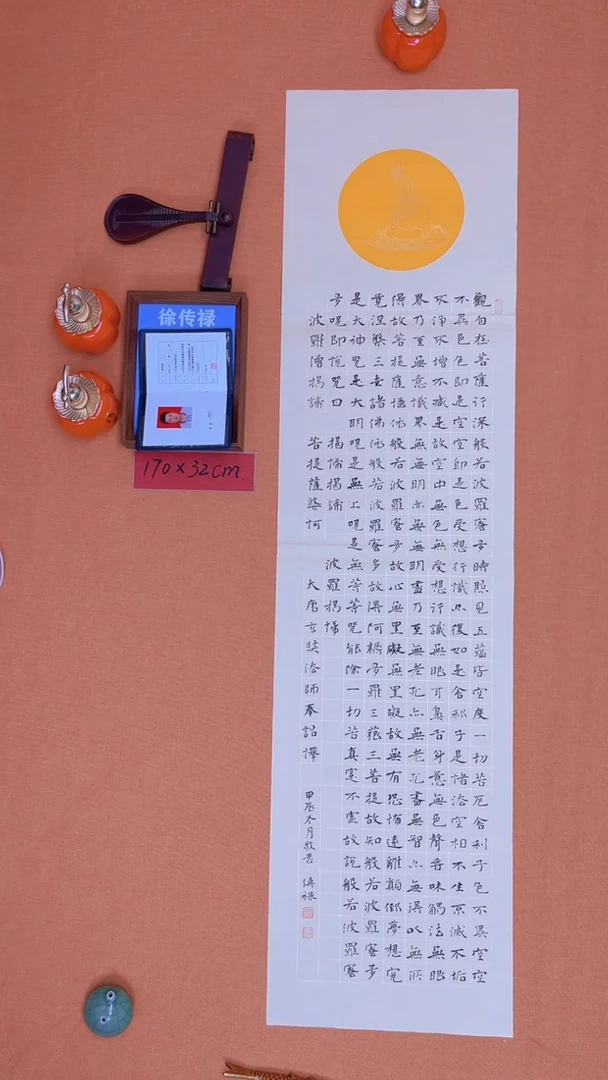 徐传禄
170×32cm.
觀自在菩薩行深般若波羅蜜多時照見五蘊皆空度一切苦厄舍利子色不異空空
不異色色即是空空即是色受想行識亦復如是舍利子是諸法空相不生不滅不垢
不淨不增不減是故空中無色無受想行識無眼耳鼻舌身意無色聲香味觸法無眼
界乃至無意識界無無明亦無無明盡乃至無老死亦無老死盡無智亦無得以無所
得故菩提薩埵依般若波羅蜜多故心無罣礙無罣礙故無有恐怖遠離顛倒夢想究
竟涅槃三世諸佛依般若波羅蜜多故得阿耨多羅三藐三菩提故知般若波羅蜜多
是大神呪是大明呪是無上呪是無等等呪能除一切苦真實不虛故說般若波羅蜜
多呪即說呪曰 揭諦揭諦 波羅揭諦
波羅僧揭諦 菩提薩婆訶 大唐玄奘法師奉詔譯 甲辰冬月敬書 傳祿